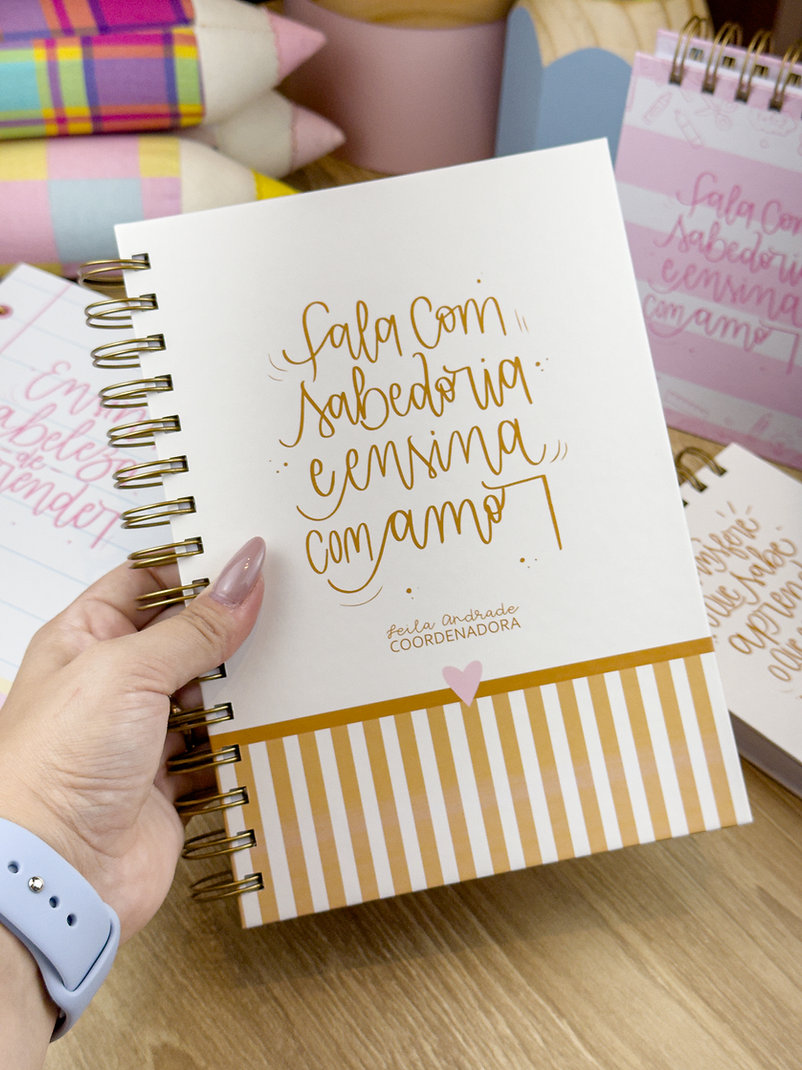 fala com
sabedoria
e ensina
com amor
Leila Andrade
COORDENADORA
fala com
sabedoria
e ensina
com amor
de
render
que sabe